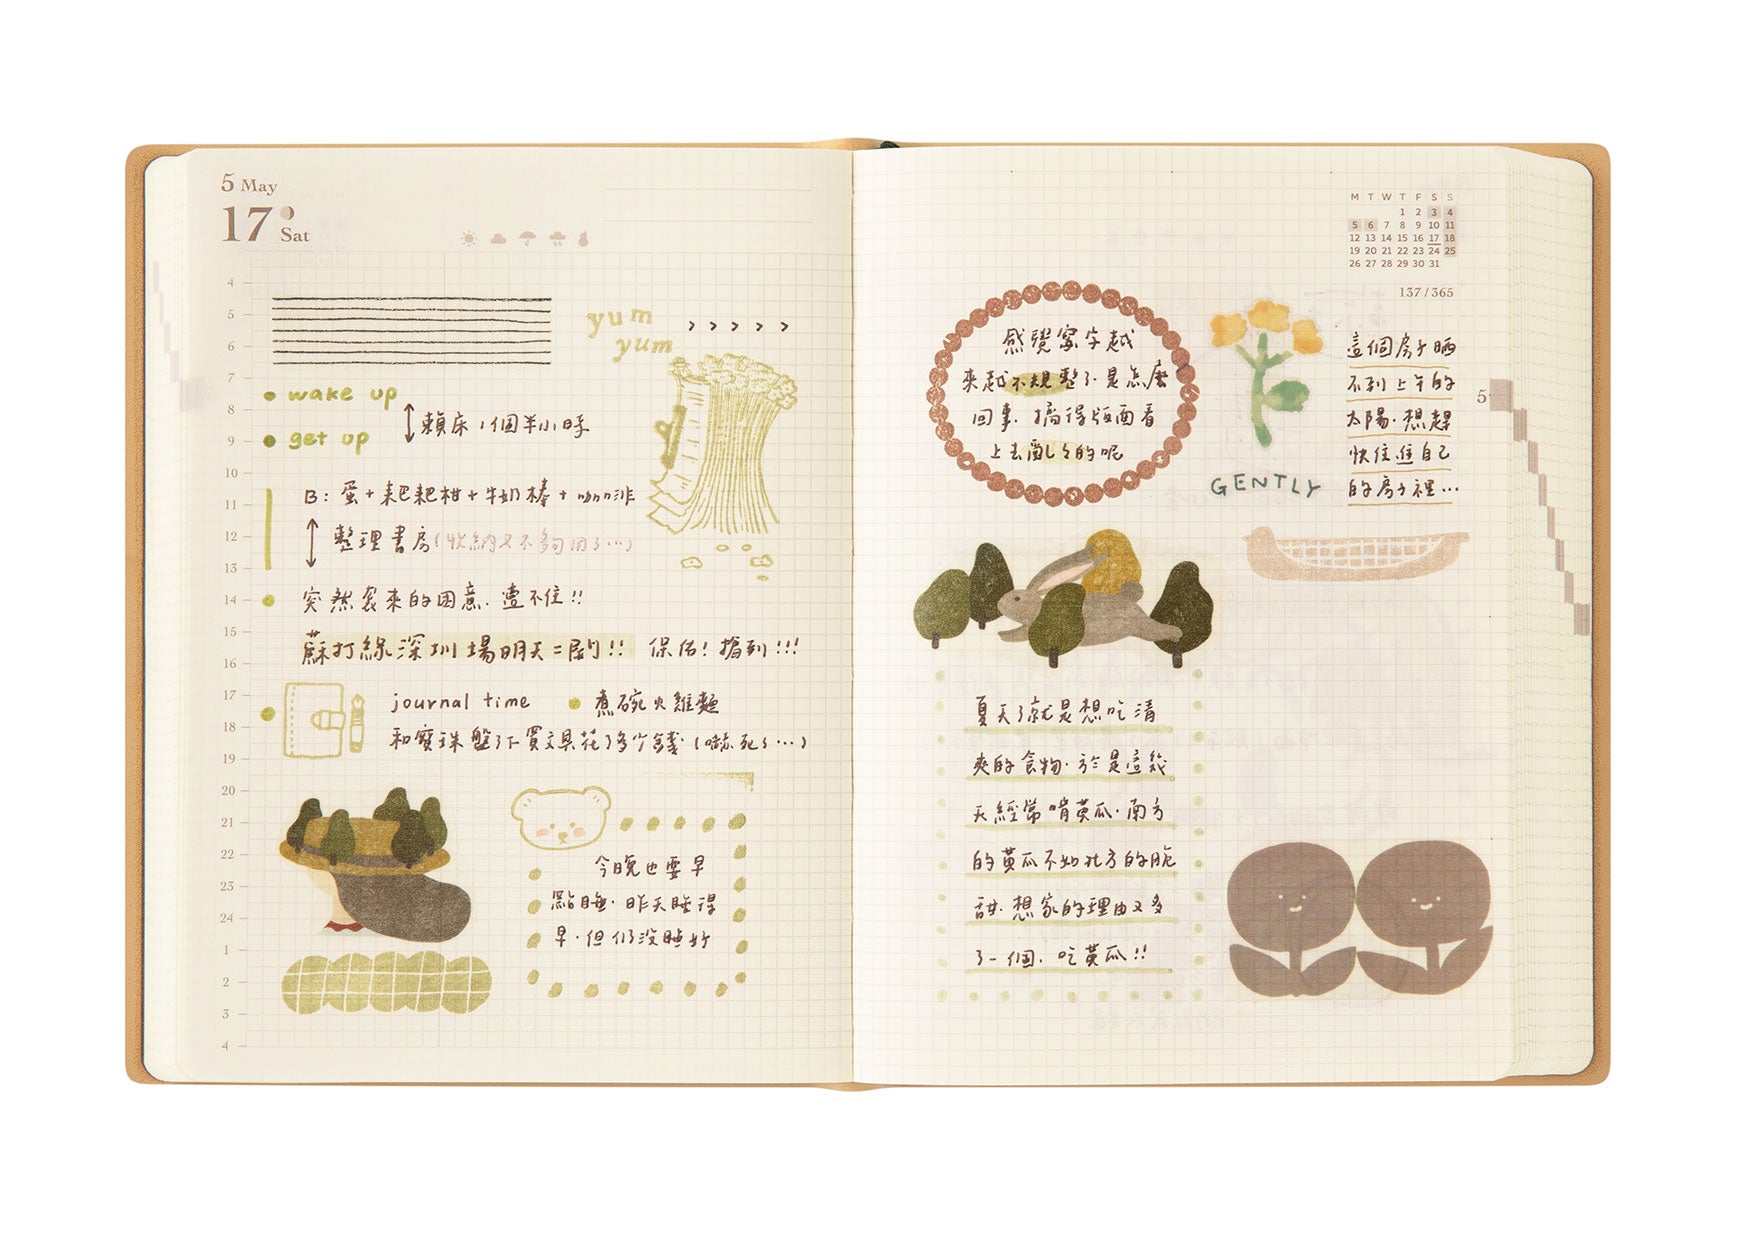 5 May
17
Sat
4
5
6
7
8
9
10
11
12
13
14
15
16
17
18
19
20
21
22
23
24
1
2
3
4
yum
yum
wake up
get up
賴床1個半小時
B: 蛋+耙耙柑+牛奶棒+咖啡
整理書房(收納又不夠用了…)
突然襲來的困意.遭不住!!
蘇打綠深圳場明天二刷!! 保佑!搶到!!!
journal time
煮碗火雞麵
和寶珠盤了下買文具花了多少錢(嚇死了…)
今晚也要早
點睡.昨天睡得
早.但仍沒睡好
M T W T F S S
1 2 3 4
5 6 7 8 9 10 11
12 13 14 15 16 17 18
19 20 21 22 23 24 25
26 27 28 29 30 31
137/365
感覺寫字越
來越不規整了.是怎麼
回事.搞得版面看
上去亂亂的呢
GENTLY
這個房子晒
不到上午的
太陽.想趕
快住進自己
的房子裡…
5
夏天了就是想吃清
爽的食物.於是這幾
天經常啃黃瓜.南方
的黃瓜不如北方的脆
甜.想家的理由又多
了一個.吃黃瓜!!